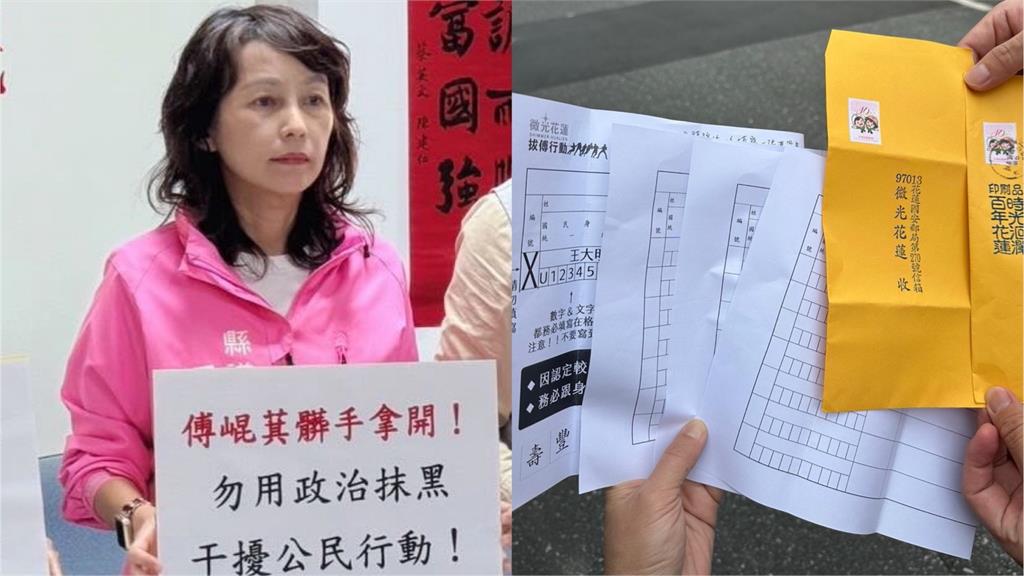 富國強
蔡英文 陳建仁
縣
傅崐萁髒手拿開！
勿用政治抹黑
干擾公民行動！
微光花蓮
SHIMMER HUALIEN
拔傅行動
編號
王大明
X U12345
數字＆文字
都務必填寫在格
注意！！不要寫到
◆ 因認定較
◆ 務必跟身
壽 豐
編號
編號
97013
花蓮國安郵局第270號信箱
微光花蓮 收
印刷品
時光迴瀾
百年花蓮